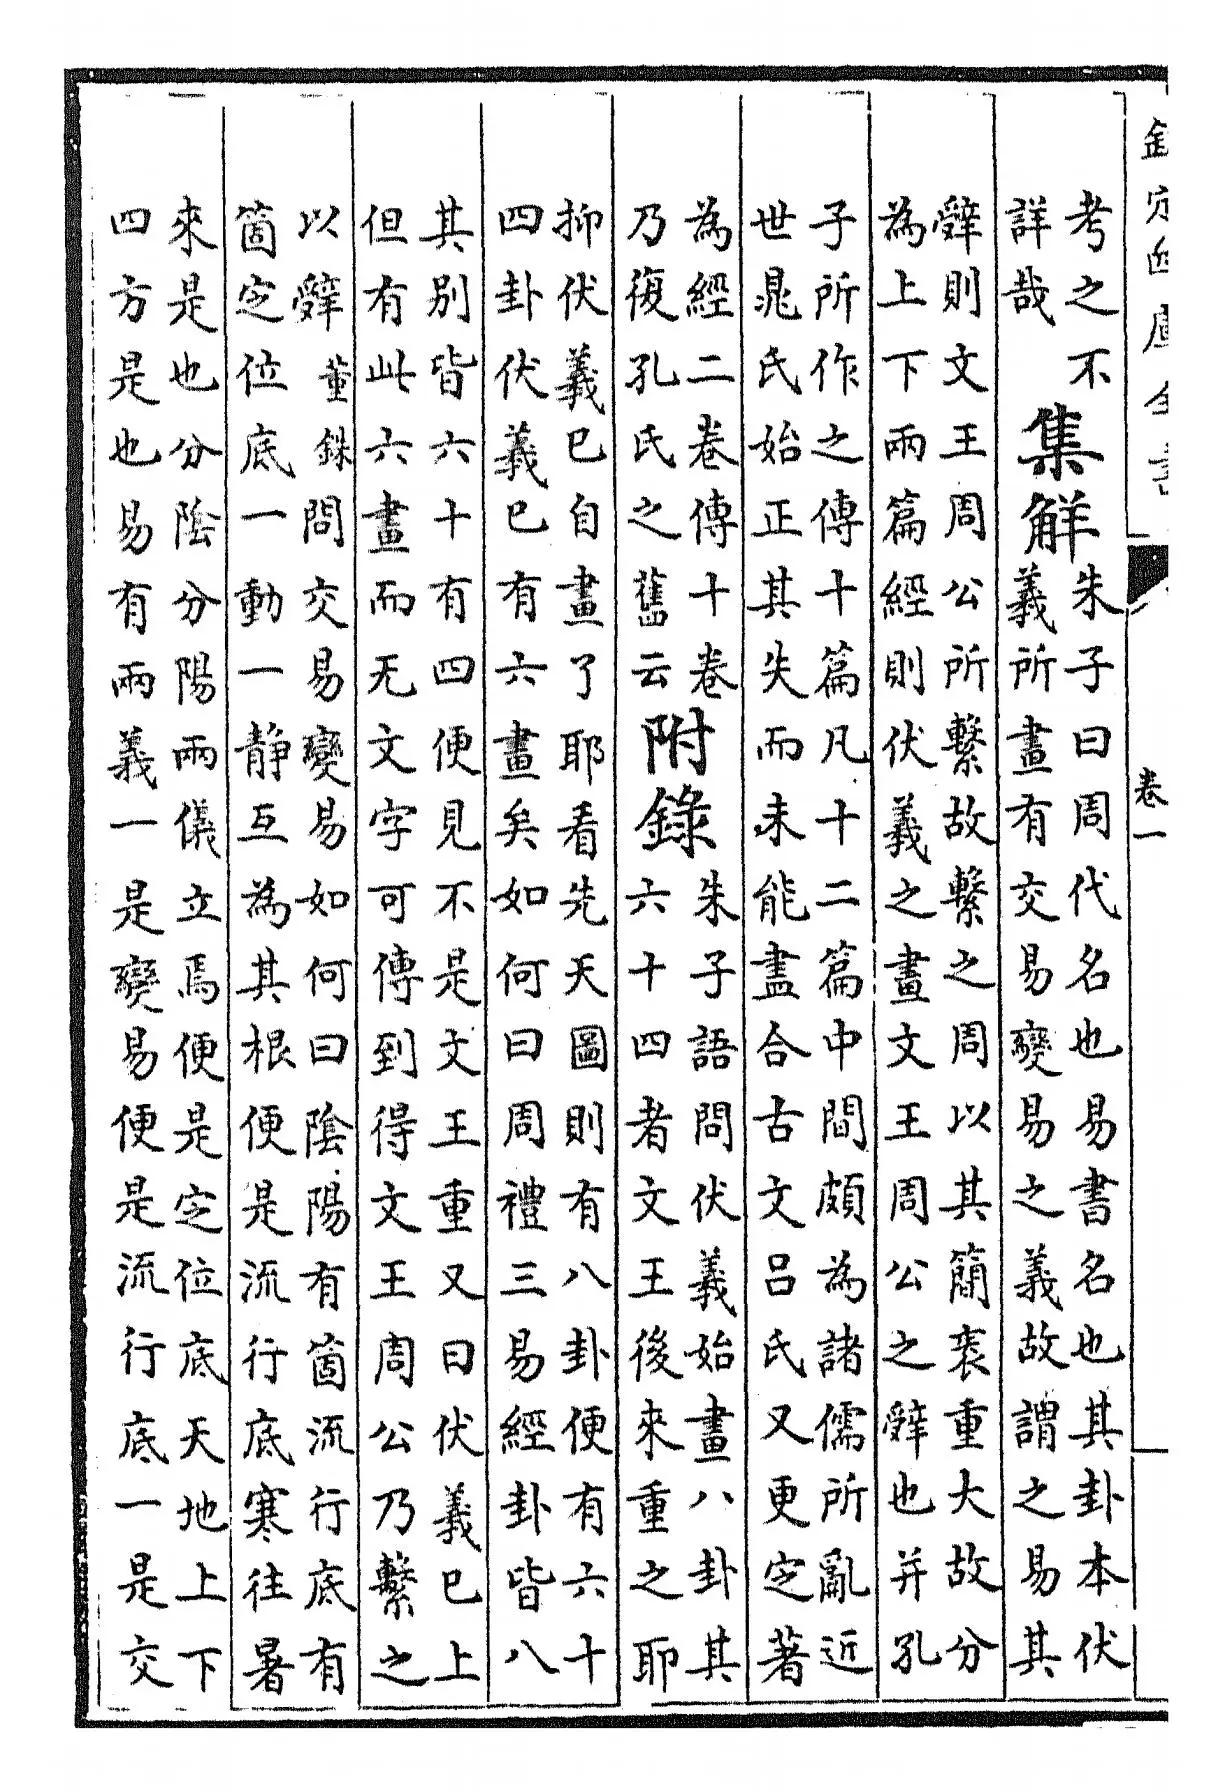 欽定四庫全書
卷一
考之不
詳哉
集解
朱子曰周代名也易書名也其卦本伏
羲所畫有交易變易之義故謂之易其
辭則文王周公所繫故繫之周以其簡袠重大故分
為上下兩篇經則伏羲之畫文王周公之辭也并孔
子所作之傳十篇凡十二篇中間頗為諸儒所亂近
世晁氏始正其失而未能盡合古文呂氏又更定著
為經二卷傳十卷
乃復孔氏之舊云
附錄
朱子語問伏羲始畫八卦其
六十四者文王後來重之耶
抑伏羲已自畫了耶看先天圖則有八卦便有六十
四卦伏羲已有六畫矣如何曰周禮三易經卦皆八
其別皆六十有四便見不是文王重又曰伏羲已上
但有此六畫而无文字可傳到得文王周公乃繫之
以辭董銖問交易變易如何曰陰陽有箇流行底有
箇定位底一動一静互為其根便是流行底寒往暑
來是也分陰分陽兩儀立焉便是定位底天地上下
四方是也易有兩義一是變易便是流行底一是交